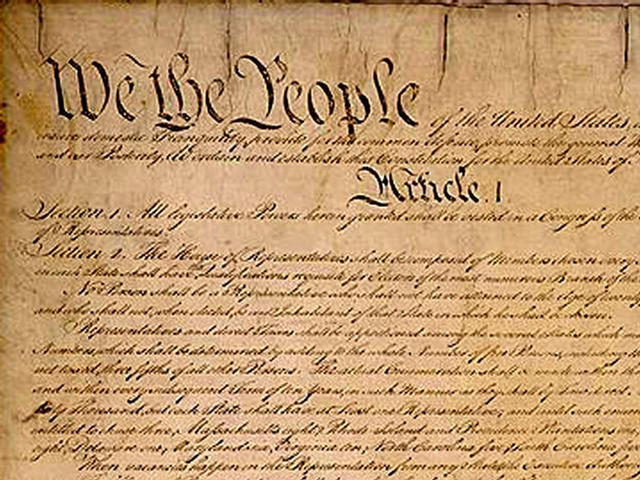 We the People of the United States,
insure domestic Tranquility, provide for the common defence, promote the general
and our Posterity, do ordain and establish this Constitution for the United States of
Article. I.
Section. 1. All legislative Powers herein granted shall be vested in a Congress of the
of Representatives.
Section. 2. The House of Representatives shall be composed of Members chosen every
in each State shall have Qualifications requisite for Electors of the most numerous Branch of the
No Person shall be a Representative who shall not have attained to the Age of twenty
and who shall not, when elected, be an Inhabitant of that State in which he shall be chosen.
Representatives and direct Taxes shall be apportioned among the several States which may
Numbers, which shall be determined by adding to the whole Number of free Persons, including
not taxed, three fifths of all other Persons. The actual Enumeration shall be made within three
and within every subsequent Term of ten Years, in such Manner as they shall by Law direct.
thirty Thousand, but each State shall have at Least one Representative; and until such enumeration
entitled to chuse three, Massachusetts eight, Rhode Island and Providence Plantations one,
eight, Delaware one, Maryland six, Virginia ten, North Carolina five, South Carolina five,
When vacancies happen in the Representation from any State, the Executive Authority